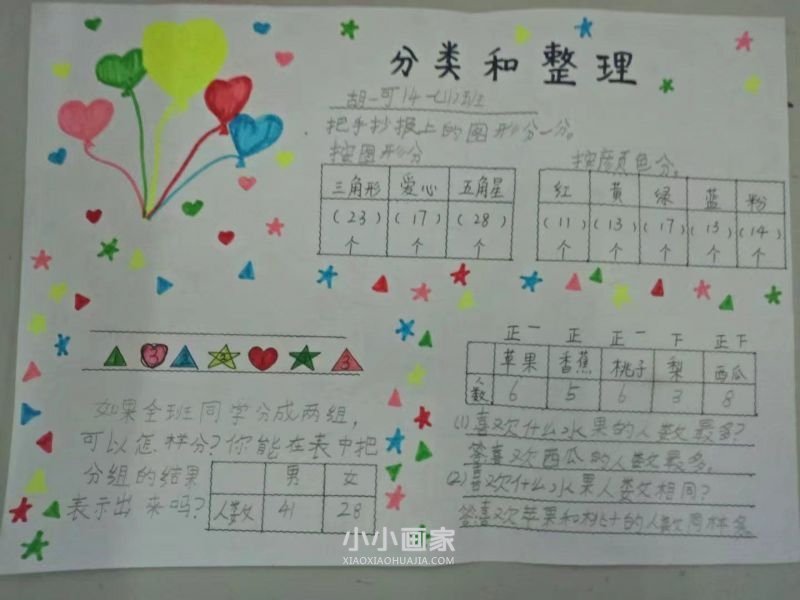 分类和整理
胡一可 14一(11)班
把手抄报上的图形分一分。
按图形分
三角形 爱心 五角星
(23)个 (17)个 (28)个
按颜色分。
红 黄 绿 蓝 粉
(11)个 (13)个 (17)个 (13)个 (14)个
1 3 2 2 1 4 3
如果全班同学分成两组,
可以怎样分?你能在表中把
分组的结果
表示出来吗?
男 女
人数 41 28
正一 正 正一 下 正下
苹果 香蕉 桃子 梨 西瓜
人数 6 5 6 3 8
(1)喜欢什么水果的人数最多?
答喜欢西瓜的人数最多。
(2)喜欢什么水果人数相同?
答喜欢苹果和桃子的人数同样多
小小画家
XIAOXIAOHUAJIA.COM